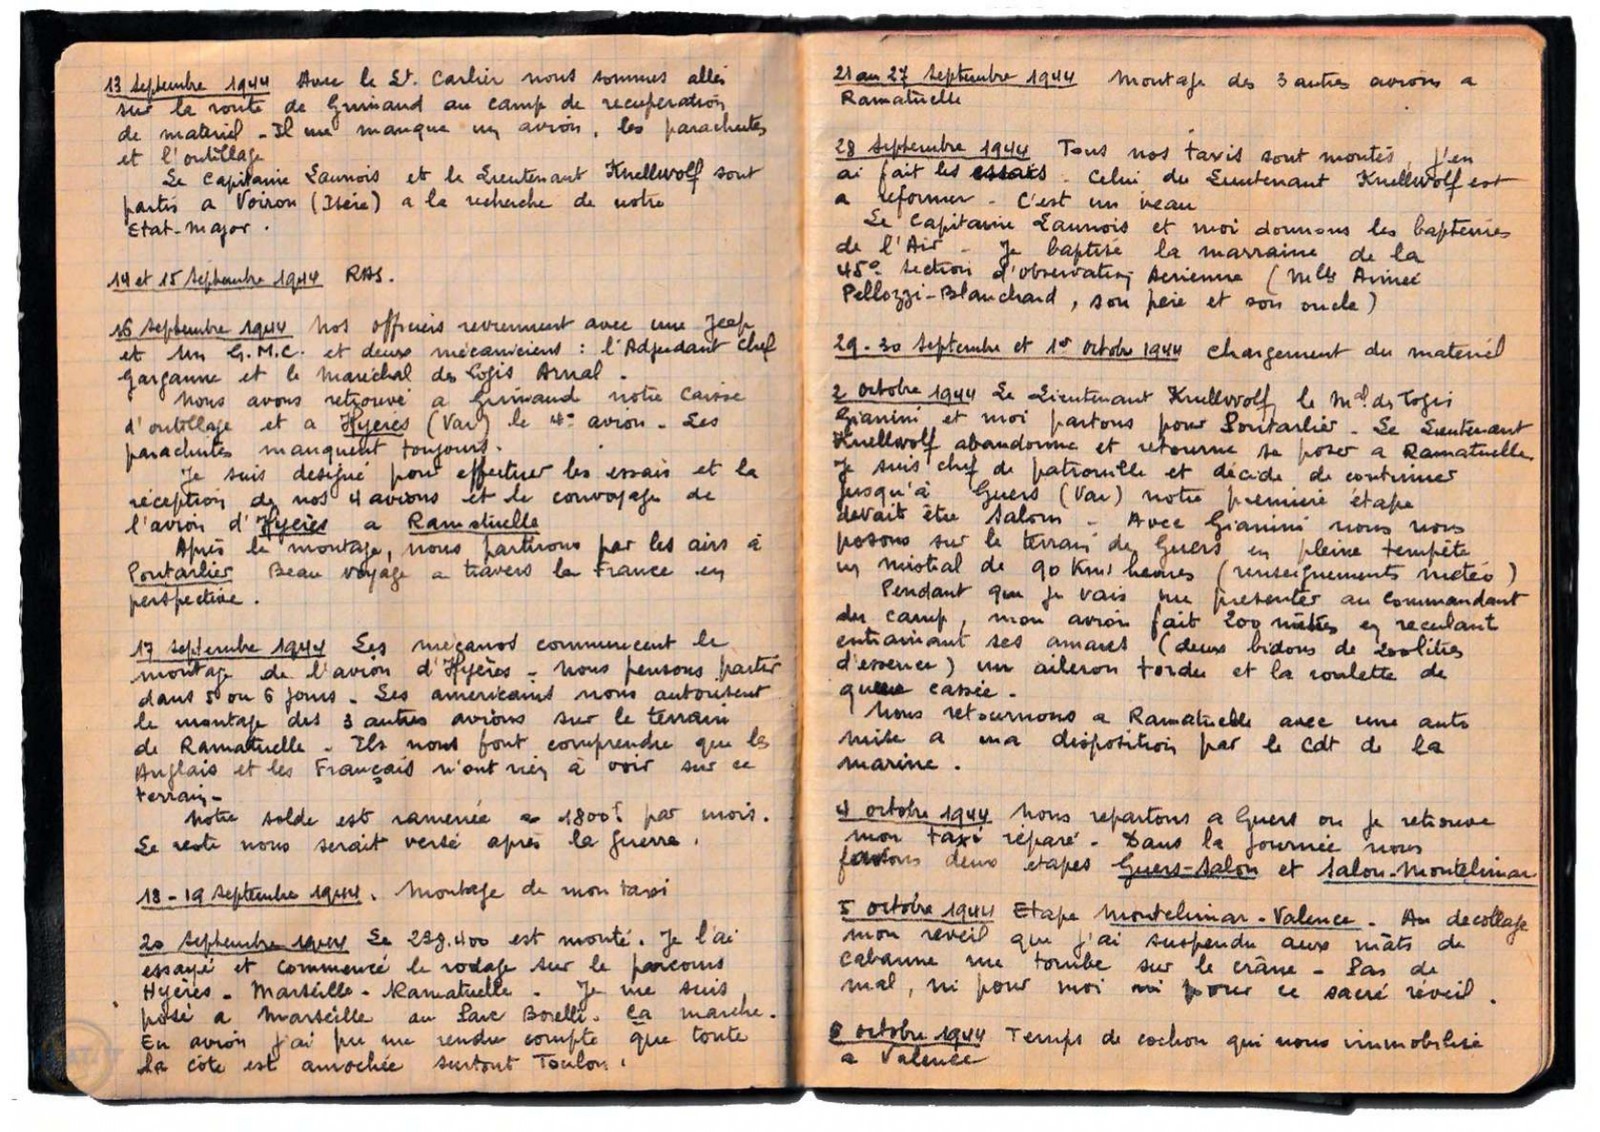 13 Septembre 1944 Avec le Lt. Carlier nous sommes allés
sur la route de Grimaud au camp de recuperation
de materiel - Il me manque un avion, les parachutes
et l'outillage
Le Capitaine Launois et le Lieutenant Knellwolf sont
partis a Voiron (Isère) a la recherche de notre
Etat-Major.
14 et 15 Septembre 1944 RAS.
16 Septembre 1944 Nos officiers reviennent avec une Jeep
et un G.M.C. et deux mécaniciens : l'Adjudant Chef
Garganne et le Maréchal des Logis Arnal.
Nous avons retrouvé a Grimaud notre caisse
d'outillage et a Hyères (Var) le 4e avion - Les
parachutes manquent toujours.
Je suis designé pour effectuer les essais et la
réception de nos 4 avions et le convoyage de
l'avion d'Hyères a Ramatuelle
Après le montage, nous partirons par les airs à
Pontarlier Beau voyage a travers la France en
perspective.
17 Septembre 1944 Les mecanos commencent le
montage de l'avion d'Hyères - Nous pensons partir
dans 5 ou 6 jours - Les americains nous autorisent
le montage des 3 autres avions sur le terrain
de Ramatuelle - Ils nous font comprendre que les
Anglais et les Français n'ont rien à voir sur ce
terrain -
Notre solde est ramenée a 1800f par mois.
Le reste nous serait versé après la guerre.
18 - 19 Septembre 1944. Montage de mon taxi
20 Septembre 1944 Le 298.400 est monté. Je l'ai
essayé et commencé le rodage sur le parcours
Hyères - Marseille - Ramatuelle - Je me suis
posé a Marseille au Parc Borelli. Ca marche.
En avion j'ai pu me rendre compte que toute
la côte est amochée surtout Toulon.
21 au 27 Septembre 1944 Montage des 3 autres avions a
Ramatuelle
28 Septembre 1944 Tous nos taxis sont montés, j'en
ai fait les essais - Celui du Lieutenant Knellwolf est
a reformer - C'est un veau
Le Capitaine Launois et moi donnons les baptêmes
de l'Air - Je baptise la marraine de la
45e Section d'observation Aerienne (Melle Aimée
Pellozzi-Blanchard, son père et son oncle)
29-30 Septembre et 1er Octobre 1944 Chargement du materiel
2 octobre 1944 Le Lieutenant Knellwolf, le Mal des Logis
Gianini et moi partons pour Pontarlier - Le Lieutenant
Knellwolf abandonne et retourne se poser a Ramatuelle
Je suis chef de patrouille et décide de continuer
jusqu'à Guers (Var) notre premiere étape
devait être Salon - Avec Gianini nous nous
posons sur le terrain de Guers en pleine tempête
un mistral de 90 Km/heures (renseignements météo)
Pendant que je vais me presenter au Commandant
du camp, mon avion fait 200 mètres en reculant
entrainant ses amares (deux bidons de 200 litres
d'essence) un aileron tordu et la roulette de
queue cassée -
Nous retournons a Ramatuelle avec une auto
mise a ma disposition par le Cdt de la
marine.
4 octobre 1944 Nous repartons a Guers ou je retrouve
mon taxi réparé - Dans la journée nous
faisons deux etapes Guers-Salon et Salon-Montelimar
5 octobre 1944 Etape Montelimar - Valence - Au decollage
mon reveil que j'ai suspendu aux mâts de
cabanne me tombe sur le crâne - Pas de
mal, ni pour moi ni pour ce sacré réveil.
6 octobre 1944 Temps de cochon qui nous immobilise
a Valence